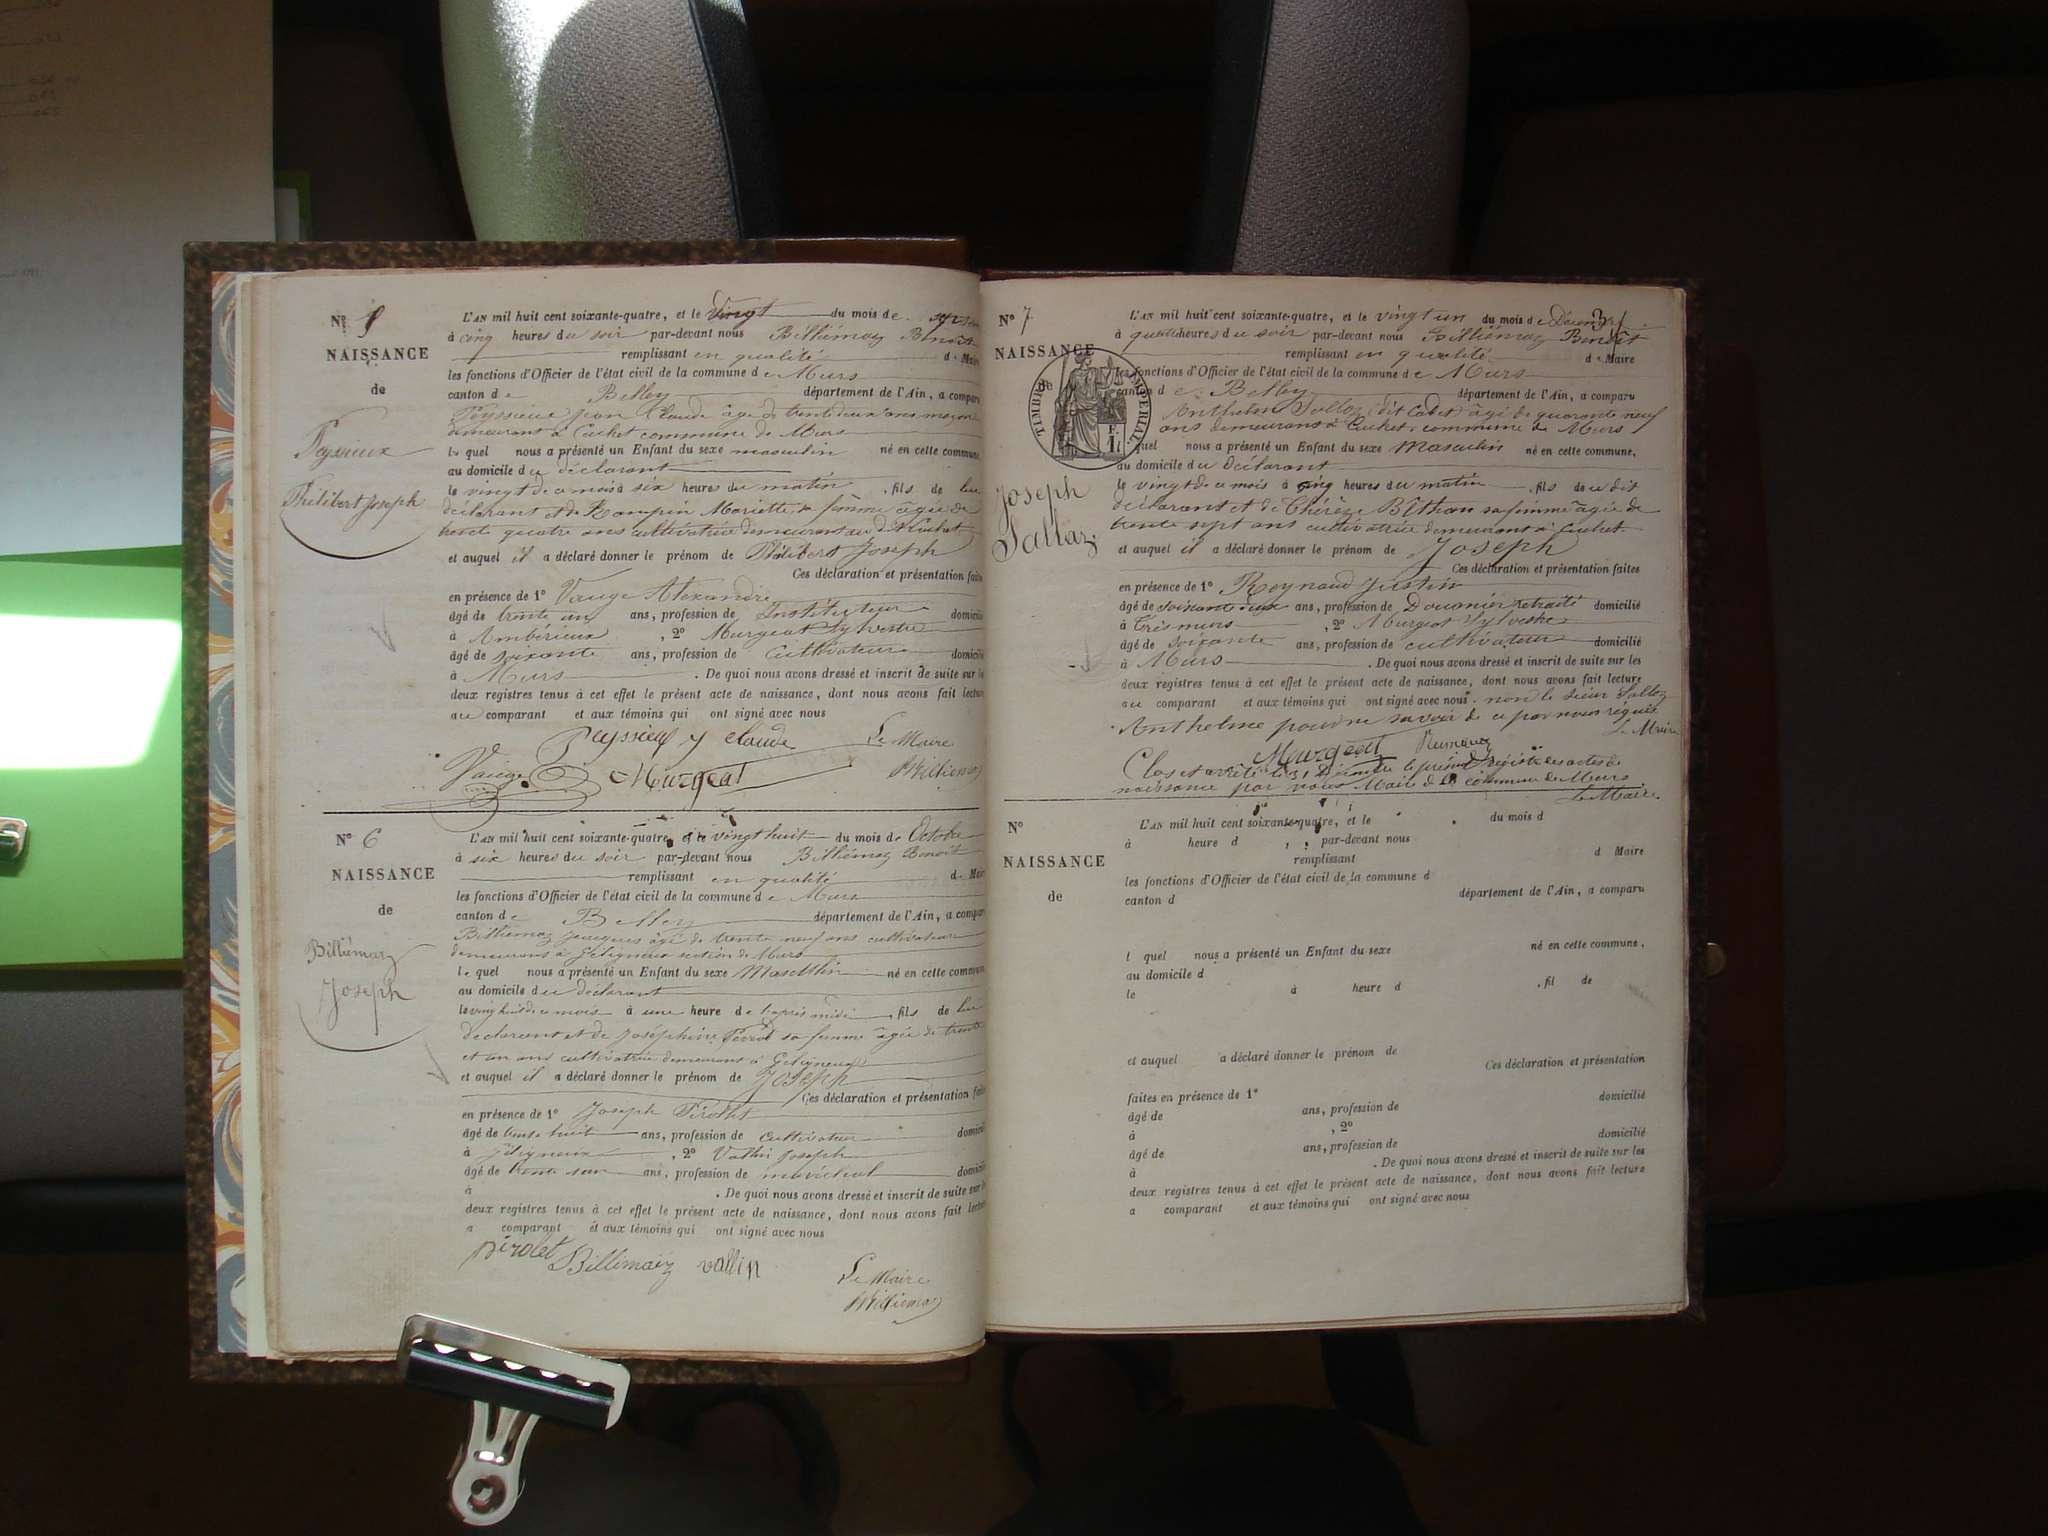 Nº
NAISSANCE
de
Peysieux
Philibert Joseph
L'AN mil huit cent soixante-quatre, et le Vingt du mois de
à cinq heures du soir par-devant nous Billiémaz Benoit
remplissant en qualité de Maire
les fonctions d'Officier de l'état civil de la commune de Murs
canton de Belley département de l'Ain, a comparu
Peyssieux jean Claude âgé de trente deux ans maçon
demeurant à Cuchet commune de Murs
le quel nous a présenté un Enfant du sexe masculin né en cette commune,
au domicile du déclarant
le vingt de ce mois à six heures du matin, fils de lui
déclarant et de Rompin Mariette sa femme âgée de
trente quatre ans cultivatrice demeurant au dit Cuchet
et auquel il a déclaré donner le prénom de Philibert Joseph
Ces déclaration et présentation faites
en présence de 1º Vauge Alexandre
âgé de trente un ans, profession de Instituteur domicilié
à Ambérieux, 2º Murgeat Sylvestre
âgé de soixante ans, profession de cultivateur domicilié
à Murs. De quoi nous avons dressé et inscrit de suite sur les
deux registres tenus à cet effet le présent acte de naissance, dont nous avons fait lecture
au comparant et aux témoins qui ont signé avec nous
Peyssieux j claude Le Maire
Vauge Murgeat Billiemaz
Nº 6
NAISSANCE
de
Billiémaz
Joseph
L'AN mil huit cent soixante-quatre, et le vingt huit du mois de Octobre
à six heures du soir par-devant nous Billiémaz Benoit
remplissant en qualité de Maire
les fonctions d'Officier de l'état civil de la commune de Murs
canton de Belley département de l'Ain, a comparu
Billiemaz jacques âgé de trente neuf ans cultivateur
demeurant à Géligneux section de Murs
le quel nous a présenté un Enfant du sexe Masculin né en cette commune
au domicile du déclarant
le vingt huit de ce mois à une heure de l'après midi, fils de lui
déclarant et de Joséphine sa femme âgée de trente
et un ans cultivatrice demeurant à Géligneux
et auquel il a déclaré donner le prénom de Joseph
Ces déclaration et présentation faites
en présence de 1º Joseph Pirollet
âgé de trente huit ans, profession de cultivateur domicilié
à Géligneux, 2º Vallin Joseph
âgé de trente ans, profession de maréchal domicilié
à . De quoi nous avons dressé et inscrit de suite sur les
deux registres tenus à cet effet le présent acte de naissance, dont nous avons fait lecture
a comparant et aux témoins qui ont signé avec nous
pirolet Billiemaiz vallin
Le Maire
Billiemaz
Nº 7
NAISSANCE
de
TIMBRE IMPERIAL
Joseph
Sallaz
L'AN mil huit cent soixante-quatre, et le vingt un du mois de Décembre
à quatre heures du soir par-devant nous Billiémaz Benoit
remplissant en qualité de Maire
les fonctions d'Officier de l'état civil de la commune de Murs
canton de Belley département de l'Ain, a comparu
Anthelme Sallaz (dit Cadet) âgé de quarante neuf
ans demeurant à Cuchet commune de Murs
lequel nous a présenté un Enfant du sexe Masculin né en cette commune,
au domicile du Déclarant
le vingt de ce mois à cinq heures du matin, fils de u dit
déclarant et de Thérèze Bithon sa femme âgée de
trente sept ans cultivatrice demeurant à Cuchet
et auquel il a déclaré donner le prénom de Joseph
Ces déclaration et présentation faites
en présence de 1º Reynaud Justin
âgé de soixante deux ans, profession de Douanier retraité domicilié
à Crismurs, 2º Murgeat Sylvestre
âgé de soixante ans, profession de cultivateur domicilié
à Murs. De quoi nous avons dressé et inscrit de suite sur les
deux registres tenus à cet effet le présent acte de naissance, dont nous avons fait lecture
au comparant et aux témoins qui ont signé avec nous non le sieur Sallaz
Anthelme pour ne savoir de ce par nous réquis
Le Maire
Murgeat
Clos et arrêté le 31 Décembre le présent régistre des actes de
naissance par nous Maire de la commune de Murs
Le Maire
Nº
NAISSANCE
de
L'AN mil huit cent soixante-quatre, et le du mois d
à heure d , par-devant nous
remplissant d Maire
les fonctions d'Officier de l'état civil de la commune d
canton d département de l'Ain, a comparu
l quel nous a présenté un Enfant du sexe né en cette commune,
au domicile d
le à heure d , fil de
et auquel a déclaré donner le prénom de
Ces déclaration et présentation
faites en présence de 1º
âgé de ans, profession de domicilié
à , 2º
âgé de ans, profession de domicilié
à . De quoi nous avons dressé et inscrit de suite sur les
deux registres tenus à cet effet le présent acte de naissance, dont nous avons fait lecture
a comparant et aux témoins qui ont signé avec nous